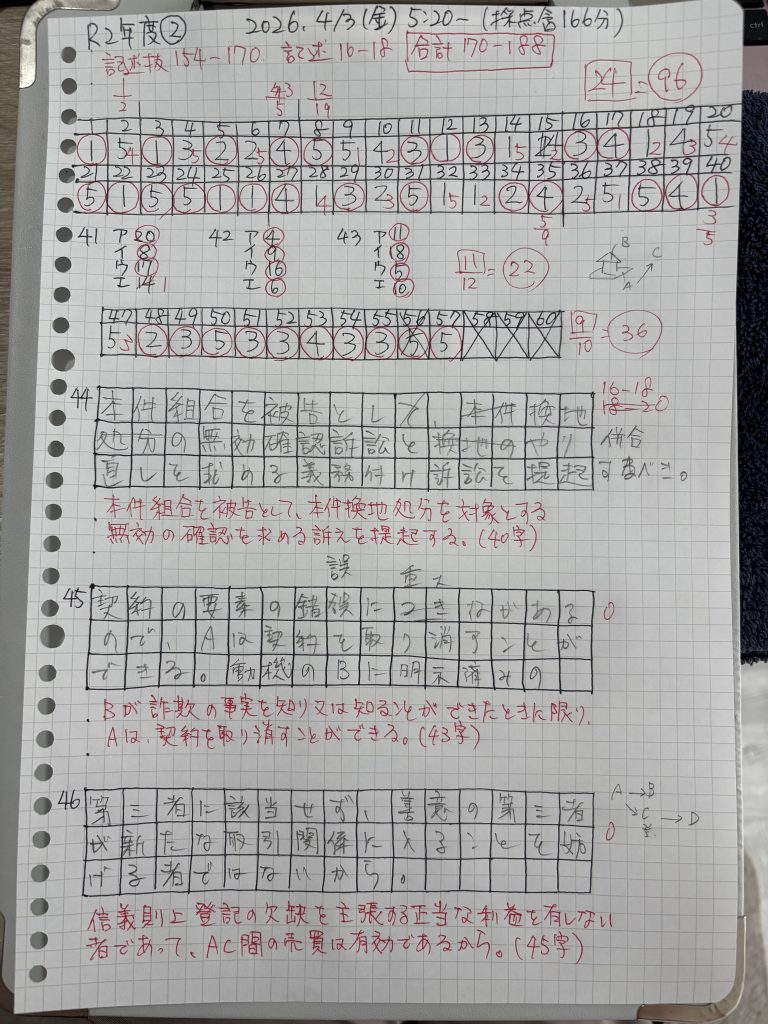 R2年度② 2026.4/3(金) 5:20~(採点含166分)
記述抜154-170 記述16-18 合計170-188
24=96
1/2 43/5 12/19
2 3 4 5 6 7 8 9 10 11 12 13 14 15 16 17 18 19 20
① 5₄ ① 3₅ ② 2₅ ④ ⑤ 5₁ 4₂ ③ ① ③ 1₅ ③ ④ 1₂ 4₃ 5₄
21 22 23 24 25 26 27 28 29 30 31 32 33 34 35 36 37 38 39 40
⑤ ① ⑤ ⑤ ① ① ④ 1₄ ③ 2₃ ⑤ 1₅ 1₂ ② ④ 2₅ 5₁ ⑤ ④ ①
5/9 3/5
41 ア20 42 ア4 43 ア11
イ8 イ9 イ8
ウ17 ウ16 ウ5
エ14 1 エ6 エ10
11/12=22
B C A
47 48 49 50 51 52 53 54 55 56 57 58 59 60
5₃ ② ③ ⑤ ③ ③ ④ ③ ③ ⑤ ⑤
9/10=36
16-18
18-20
44 本件組合を被告として、本件換地
処分の無効確認訴訟と換地のやり 併合
直しを求める義務付け訴訟を提起 すべき。
本件組合を被告として、本件換地処分を対象とする
無効の確認を求める訴えを提起する。(40字)
誤 重大
45 契約の要素の錯誤につきなかがある 0
ので、Aは契約を取り消すことが
できる。動機のBに明示済みの
Bが詐欺の事実を知り又は知ることができたときに限り、
Aは、契約を取り消すことができる。(43字)
46 第三者に該当せず、善意の第三者
が新たな取引関係に入ることを妨
げる者ではないから。
A→B
C →D
0
信義則上登記の欠缺を主張する正当な利益を有しない
者であって、AC間の売買は有効であるから。(45字)
ctrl